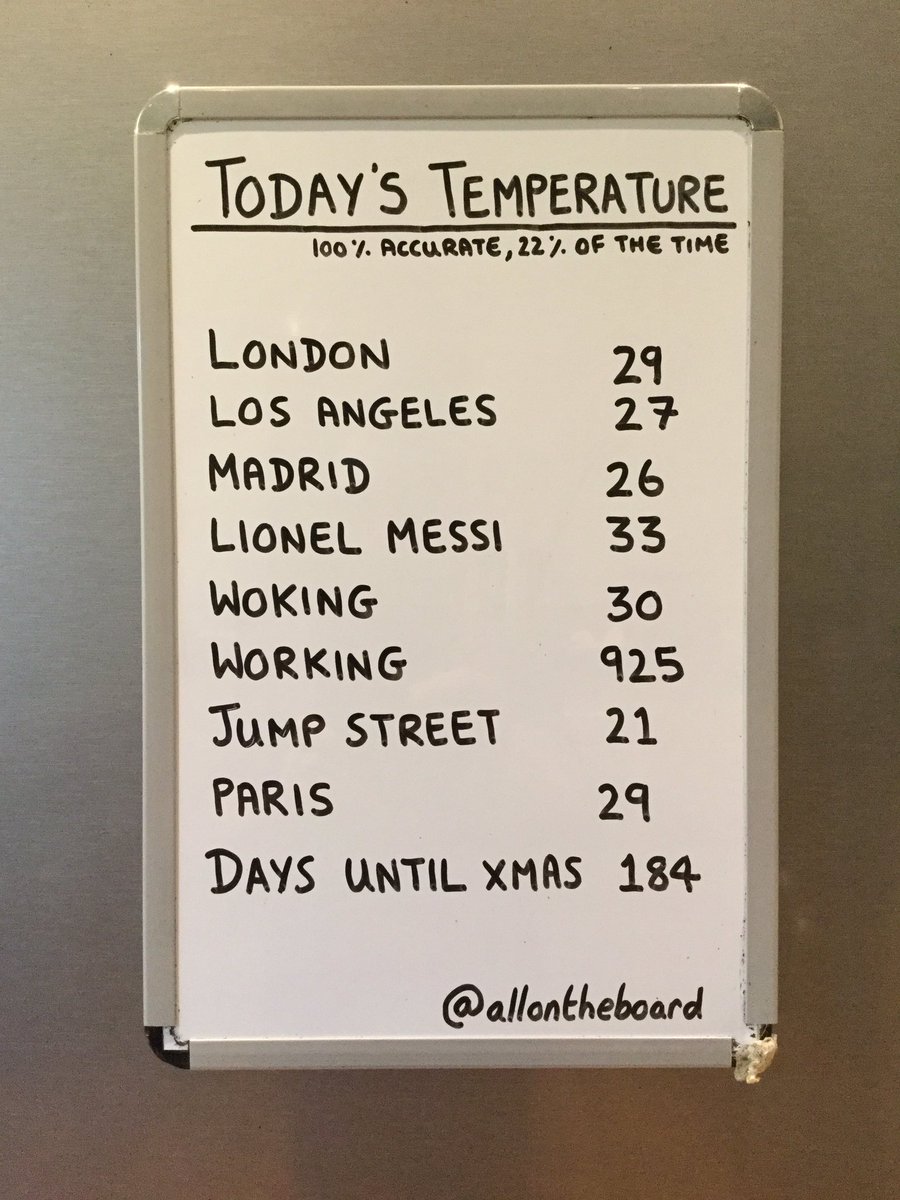 TODAY'S TEMPERATURE
100% ACCURATE, 22% OF THE TIME
LONDON 29
LOS ANGELES 27
MADRID 26
LIONEL MESSI 33
WOKING 30
WORKING 925
JUMP STREET 21
PARIS 29
DAYS UNTIL XMAS 184
@allontheboard